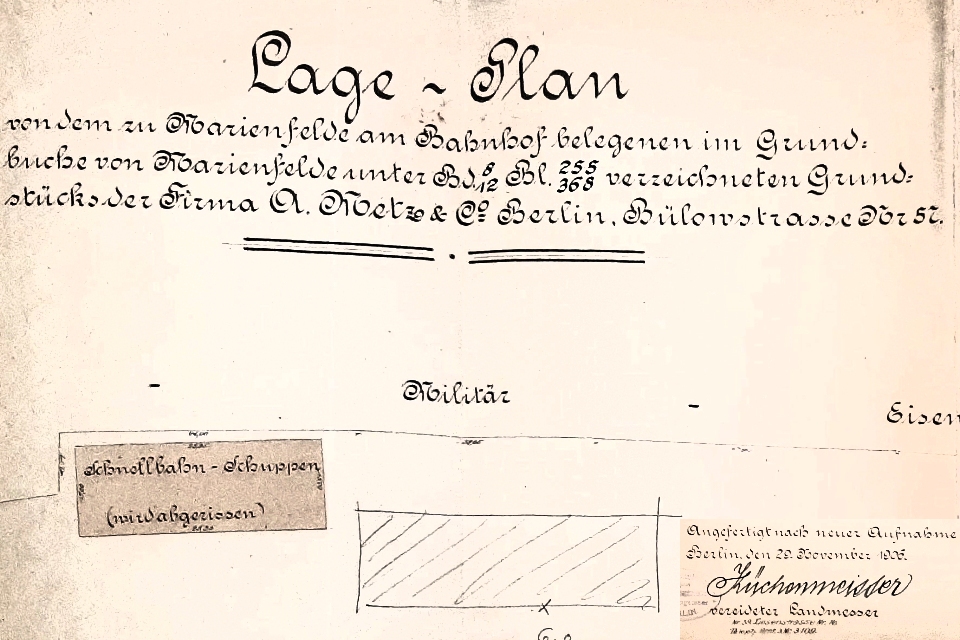 Lage - Plan
von dem zu Marienfelde am Bahnhof belegenen im Grund:
buche von Marienfelde unter Bd. 8/12 Bl. 255/368 verzeichneten Grund:
stücks der Firma A. Metz & Co Berlin, Bülowstrasse Nr 57.
Militär
Eisen
Schnellbahn - Schuppen
(wird abgerissen)
Angefertigt nach neuer Aufnahme
Berlin, den 29. November 1906.
Küchenmeisser
vereideter Landmesser